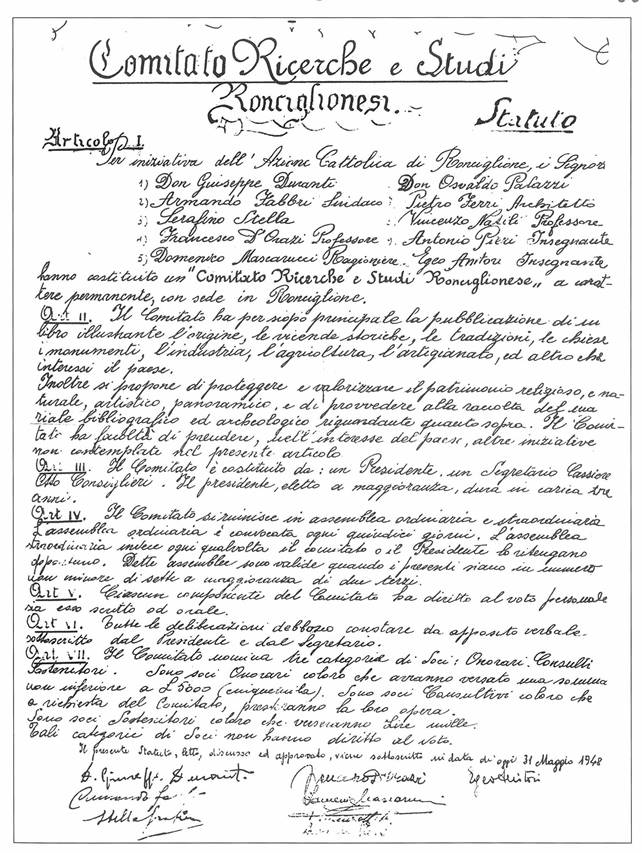 Comitato Ricerche e Studi
Ronciglionesi.
Statuto
Articolo I
Per iniziativa dell'Azione Cattolica di Ronciglione, i Signori
1) Don Giuseppe Duranti Don Osvaldo Palazzi
2) Armando Fabbri Sindaco Pietro Ferri Architetto
3) Serafino Stella Vincenzo Natili Professore
4) Francesco D'Orazi Professore Antonio Pieri Insegnante
5) Domenico Mascarucci Ragioniere Egeo Anitori Insegnante
hanno costituito un "Comitato Ricerche e Studi Ronciglionese" a carat-
tere permanente, con sede in Ronciglione.
Art II. Il Comitato ha per scopo principale la pubblicazione di un
libro illustrante l'origine, le vicende storiche, le tradizioni, le chiese
i monumenti, l'industria, l'agricoltura, l'artigianato, ed altro che
interessi il paese.
Inoltre si propone di proteggere e valorizzare il patrimonio religioso, e na-
turale, artistico, panoramico, e di provvedere alla raccolta del ma
riale bibliografico ed archeologico riguardante quanto sopra. Il Comi-
tato ha facoltà di prendere, nell'interesse del paese, altre iniziative
non contemplate nel presente articolo
Art III. Il Comitato è costituito da: un Presidente. un Segretario Cassiere
Otto Consiglieri. Il presidente, eletto a maggioranza, dura in carica tre
anni.
Art IV. Il Comitato si riunisce in assemblea ordinaria e straordinaria
L'assemblea ordinaria è convocata ogni quindici giorni. L'assemblea
straordinaria invece ogni qualvolta il comitato o il Presidente lo ritengano
opportuno. Dette assemblee sono valide quando i presenti siano in numero
non minore di sette a maggioranza di due terzi.
Art V. Ciascun componente del Comitato ha diritto al voto personale
sia esso scritto od orale.
Art VI. Tutte le deliberazioni debbono constare da apposito verbale
sottoscritto dal Presidente e dal Segretario.
Art VII. Il Comitato nomina tre categorie di Soci: Onorari. Consulti
Sostenitori. Sono soci Onorari coloro che avranno versato una somma
non inferiore a £ 5000 (cinquemila). Sono soci Consultivi coloro che
a richiesta del Comitato, presteranno la loro opera.
Sono soci Sostenitori coloro che verseranno Lire mille.
Tali categorie di Soci non hanno diritto al voto.
Il presente Statuto, letto, discusso ed approvato, viene sottoscritto in data di oggi 31 Maggio 1948
D. Giuseppe Duranti Francesco D'Orazi Egeo Anitori
Armando Domenico Mascarucci
Stella Serafino